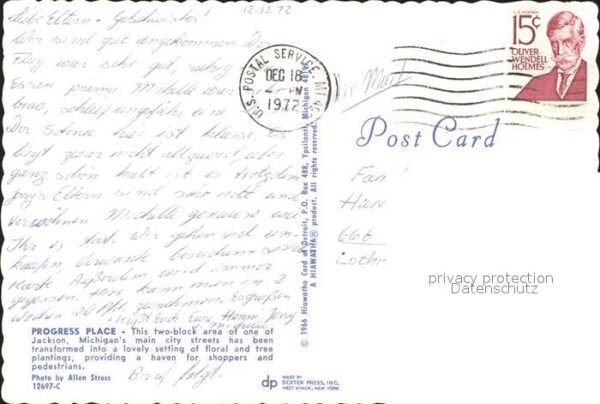 12.12.72
Liebe Eltern + Geschwister!
Wir sind gut angekommen. Der
Flug war sehr gut, ruhig
Essen prima. Michelle war
brav, schlief
Der Schnee hier ist klasse. Es
liegt zwar nicht allzuviel, aber
ganz schön kalt ist es trotzdem
Eltern sind sehr nette und
verwöhnen Michelle genauso wie
Ihr es tut. Wir gehen viel ein-
kaufen, Verwandte besuchen
Außerdem wird immer
gegessen. Hier kann man in 2
Wochen 20 Pfd. zunehmen. Es grüßen
Eure
Brief folgt.
PROGRESS PLACE - This two-block area of one of
Jackson, Michigan's main city streets has been
transformed into a lovely setting of floral and tree
plantings, providing a haven for shoppers and
pedestrians.
Photo by Allen Stross
12697-C
© 1966 Hiawatha Card of Detroit, P.O. Box 488, Ypsilanti, Michigan
A HIAWATHA® product. All rights reserved.
dp MADE BY
DEXTER PRESS, INC.
WEST NYACK, NEW YORK
U.S. POSTAL SERVICE, MI
DEC 18
PM
1972
Air Mail
U.S. POSTAGE
15¢
OLIVER
WENDELL
HOLMES
Post Card
Fam
HAN
666
Lothr
privacy protection
Datenschutz